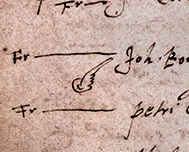 Fr
Fr Joh. Bo
Fr petri